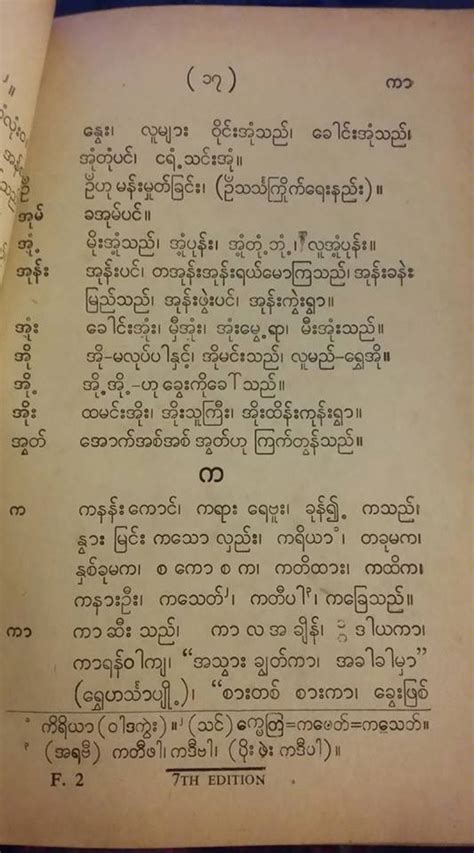 (၁၇) ကာ
နွေး၊ လူများ ဝိုင်းအုံသည်၊ ခေါင်းအုံသည်၊
အုံတုံပင်၊ ငရံ့သင်းအုံ။
ဥ် ဥ်ဟု မန်းမှုတ်ခြင်း၊ (ဥ်သင်္သကြိုက်ရေးနည်း)။
အုမ် ခအုမ်ပင်။
အုံ့ မိုးအုံ့သည်၊ အုံ့ပုန်း၊ အုံ့တုံ့ဘုံ့၊ လူအုံ့ပုန်း။
အုန်း အုန်းပင်၊ တအုန်းအုန်းရယ်မောကြသည်၊ အုန်းခနဲ
မြည်သည်၊ အုန်းဖွဲးပင်၊ အုန်းကွဲးရွာ။
အုံး ခေါင်းအုံး၊ မှီအုံး၊ အုံးမွေ့ရာ၊ မီးအုံးသည်။
အို အို-မလုပ်ပါနှင့်၊ အိုမင်းသည်၊ လူမည်-ရွှေအို။
အို့ အို့အို့-ဟု ခွေးကိုခေါ်သည်။
အိုး ထမင်းအိုး၊ အိုးသူကြီး၊ အိုးထိန်းကုန်းရွာ။
အွတ် အောက်အစ်အစ် အွတ်ဟု ကြက်တွန်သည်။
က
က ကနန်းကောင်၊ ကရား ရေဗူး၊ ခုန်၍ ကသည်၊
နွား မြင်း ကသော လှည်း၊ ကရိယာ၊ တခုမက၊
နှစ်ခုမက၊ စ ကော စ က၊ ကတိထား၊ ကထိက၊
ကနားဦး၊ ကသေတ်၊ ကတီပါ၊ ကခြေသည်။
ကာ ကာ ဆီး သည်၊ ကာ လ အ ချိန်၊ ဒါယကာ၊
ကာရန်ဝါကျ၊ “အသွား ချွတ်ကာ၊ အခါခါမှာ”
(ရွှေဟင်္သာပျို့)၊ “စားတစ် စားကာ၊ ခွေးဖြစ်
ကိရိယာ (ဝါဒကွဲး)။ (သင်) =ကဖေတ်=ကသေတ်။
(အရဗီ) ကတီဖါ၊ ကဒီဗါ၊ (ပိုးဖဲး ကဒီပါ)။
F. 2 7TH EDITION